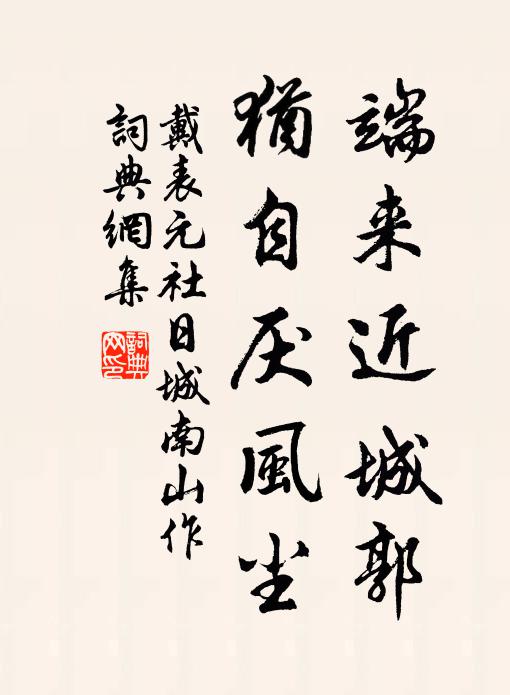 端来近城郭
猶自厌風尘
戴表元社日城南山作
詞典網集
詞典
网印